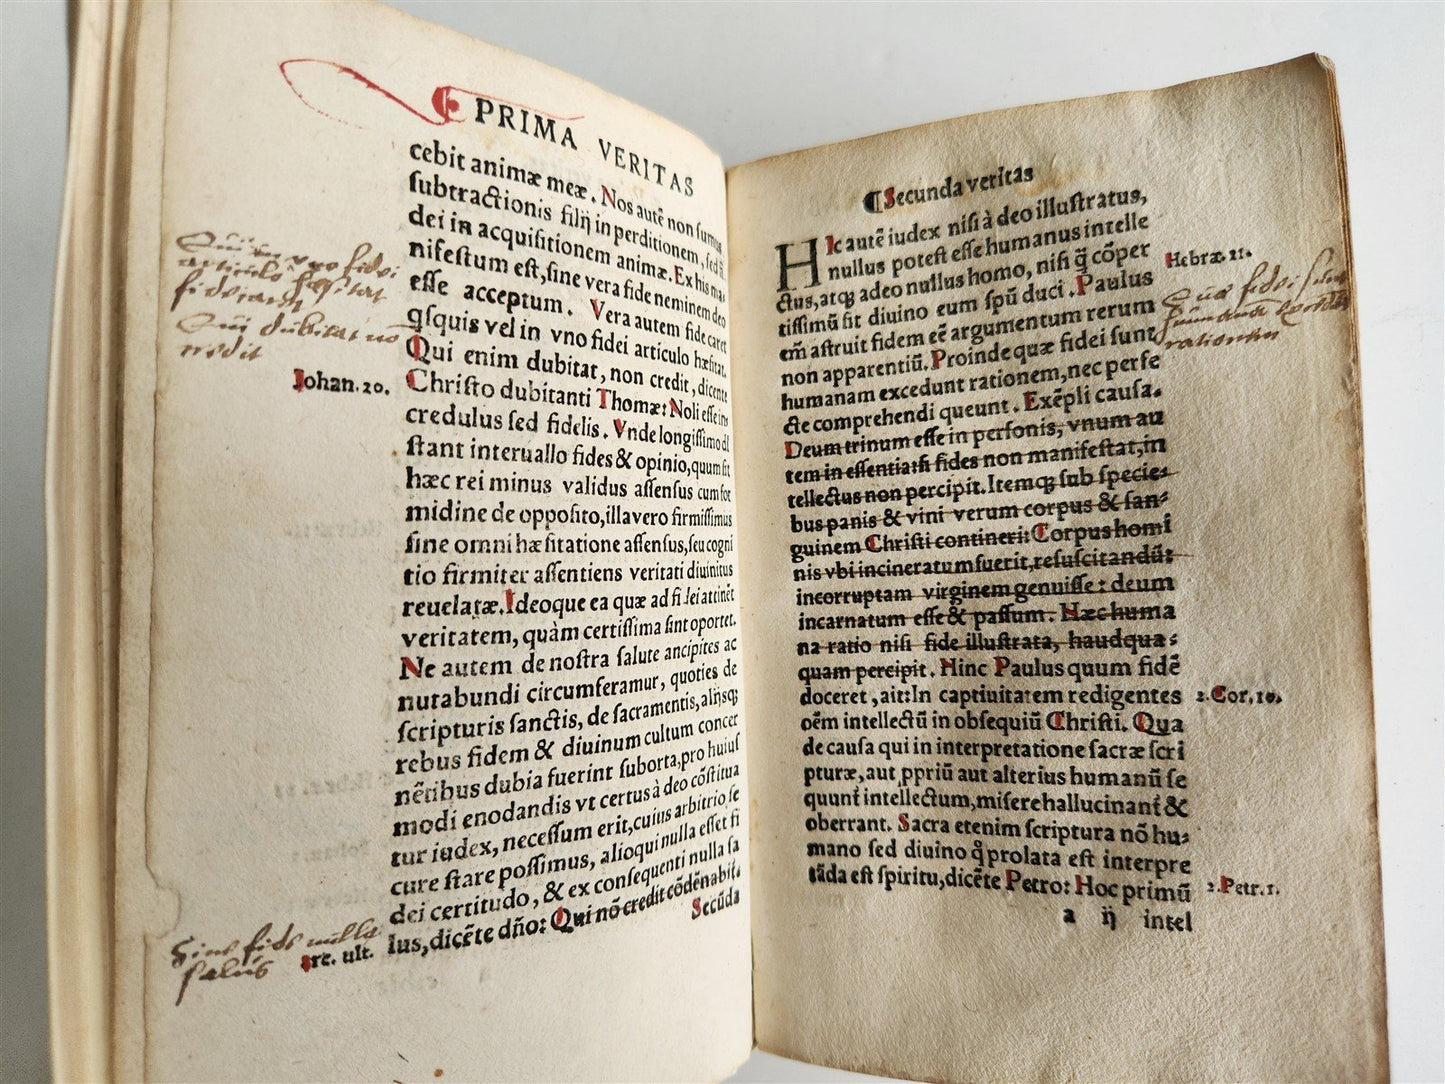 PRIMA VERITAS
cebit animæ meæ. Nos autē non sumus
subtractionis filij in perditionem, sed
dei in acquisitionem animæ. Ex his ma
nifestum est, sine vera fide neminem deo
esse acceptum. Vera autem fide caret
qsquis vel in vno fidei articulo hæsitat.
Qui enim dubitat, non credit, dicente
Christo dubitanti Thomæ: Noli esse in
credulus sed fidelis. Vnde longissimo di
stant interuallo fides & opinio, quum sit
hæc rei minus validus assensus cum for
midine de opposito, illa vero firmissimus
sine omni hæsitatione assensus, seu cogni
tio firmiter assentiens veritati diuinitus
reuelatæ. Ideoque ea quæ ad fidei attinēt
veritatem, quàm certissima sint oportet.
Ne autem de nostra salute ancipites ac
nutabundi circumferamur, quoties de
scripturis sanctis, de sacramentis, alijsqȝ
rebus fidem & diuinum cultum concer
nētibus dubia fuerint suborta, pro huius
modi enodandis vt certus à deo cōstitua
tur iudex, necessum erit, cuius arbitrio se
cure stare possimus, alioqui nulla esset fi
dei certitudo, & ex consequenti nulla sa
lus, dicēte dño: Qui nō credit cōdēnabit.
Secūda
Qui in vno fidei
articulo hæsitat
Qui dubitat non
credit
Iohan. 20.
Sine fide nulla
salus
ult.
¶Secunda veritas
HIc autē iudex nisi à deo illustratus,
nullus potest esse humanus intelle
ctus, atqȝ adeo nullus homo, nisi q̄ cōper
tissimū sit diuino eum spū duci. Paulus
em̄ astruit fidem eē argumentum rerum
non apparentiū. Proinde quæ fidei sunt
humanam excedunt rationem, nec perfe
cte comprehendi queunt. Exēpli causa.
Deum trinum esse in personis, vnum au
tem in essentia: si fides non manifestat, in
tellectus non percipit. Itemqȝ sub specie-
bus panis & vini verum corpus & san-
guinem Christi contineri: Corpus homi
nis vbi incineratum fuerit, resuscitandū:
incorruptam virginem genuisse: deum
incarnatum esse & passum. Hæc huma
na ratio nisi fide illustrata, haudqua-
quam percipit. Hinc Paulus quum fidē
doceret, ait: In captiuitatem redigentes
oēm intellectū in obsequiū Christi. Qua
de causa qui in interpretatione sacræ scri
pturæ, aut ppriū aut alterius humanū se
quunt̄ intellectum, misere hallucinant̄ &
oberrant. Sacra etenim scriptura nō hu-
mano sed diuino q̄ prolata est interpre
tāda est spiritu, dicēte Petro: Hoc primū
a ij intel
Hebræ. 11.
Quæ fidei sunt
humanam
rationem
2. Cor. 10.
2. Petr. 1.